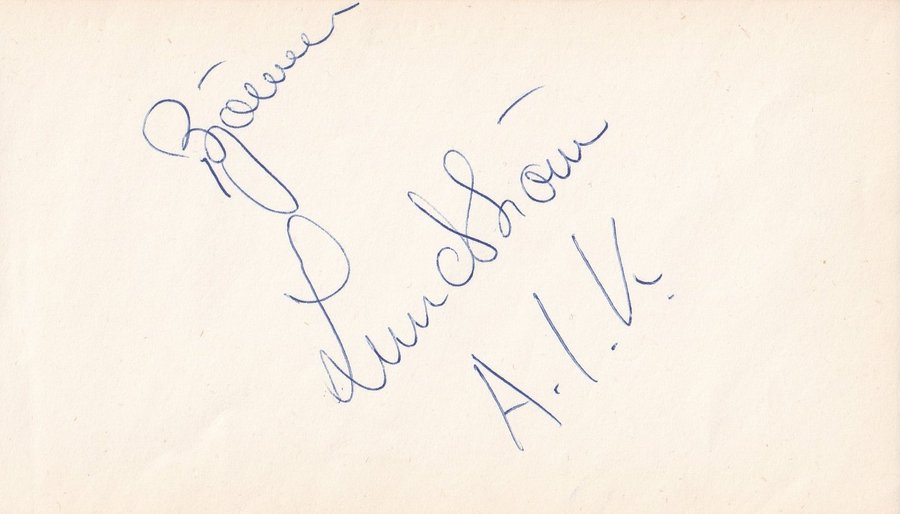 Björner
Lundström
A.I.K.